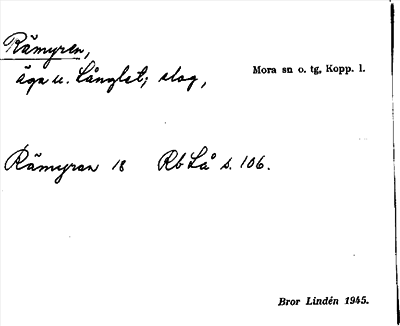 Rämyren,
äga u. Långlet; slog,
Mora sn o. tg, Kopp. l.
Rämyran 18 Rb Lå s. 106.
Bror Lindén 1945.